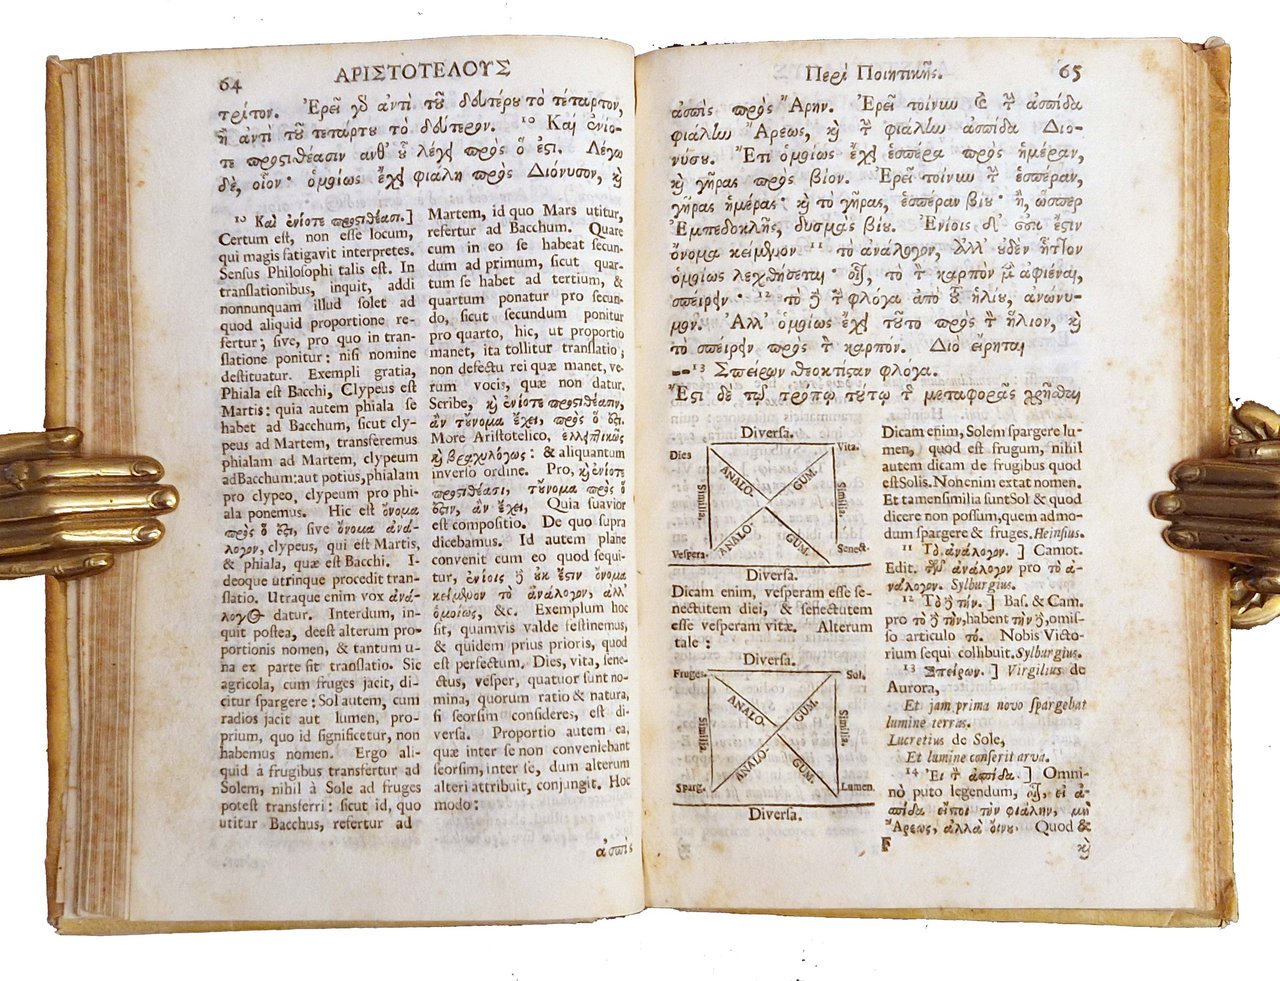 64 ΑΡΙΣΤΟΤΕΛΟΥΣ
τρίτον. Ἐρεῖ γὸ ἀντὶ τοῦ δευτέρου τὸ τέταρτον,
ἢ ἀντὶ τοῦ τετάρτου τὸ δεύτερον. 10 Καὶ ἐνίο-
τε προστιθέασιν ἀνθ' οὗ λέγει πρὸς ὅ ἐστι. Λέγω
δὲ, οἷον· ὁμοίως ἔχει φιάλη πρὸς Διόνυσον, καὶ
10 Καὶ ἐνίοτε προστιθέασι.]
Certum est, non esse locum,
qui magis fatigavit interpretes.
Sensus Philosophi talis est. In
translationibus, inquit, addi
nonnunquam illud solet ad
quod aliquid proportione re-
fertur; sive, pro quo in tran-
slatione ponitur: nisi nomine
destituatur. Exempli gratia,
Phiala est Bacchi, Clypeus est
Martis: quia autem phiala se
habet ad Bacchum, sicut cly-
peus ad Martem, transferemus
phialam ad Martem, clypeum
ad Bacchum: aut potius, phialam
pro clypeo, clypeum pro phi-
ala ponemus. Hic est ὄνομα
πρὸς ὅ ἐστι, sive ὄνομα ἀνά-
λογον, clypeus, qui est Martis,
& phiala, quæ est Bacchi. I-
deoque utrinque procedit tran-
slatio. Utraque enim vox ἀνά-
λογος datur. Interdum, in-
quit postea, deest alterum pro-
portionis nomen, & tantum u-
na ex parte sit translatio. Sic
agricola, cum fruges jacit, di-
citur spargere: Sol autem, cum
radios jacit aut lumen, pro-
prium, quo id significetur, non
habemus nomen. Ergo ali-
quid à frugibus transfertur ad
Solem, nihil à Sole ad fruges
potest transferri: sicut id, quo
utitur Bacchus, refertur ad
Martem, id quo Mars utitur,
refertur ad Bacchum. Quare
cum in eo se habeat secun-
dum ad primum, sicut quar-
tum se habet ad tertium, &
quartum ponatur pro secun-
do, sicut secundum ponitur
pro quarto, hic, ut proportio
manet, ita tollitur translatio;
non defectu rei quæ manet, ve-
rum vocis, quæ non datur.
Scribe, καὶ ἐνίοτε προστιθέασιν,
ἂν τοὔνομα ἔχει, πρὸς ὅ ἐστι.
More Aristotelico, ἐλλειπτικῶς
καὶ βραχυλόγως: & aliquantum
inverso ordine. Pro, καὶ ἐνίοτε
προστιθέασι, τοὔνομα πρὸς ὅ
ἐστιν, ἂν ἔχει, Quia suavior
est compositio. De quo supra
dicebamus. Id autem plane
convenit cum eo quod sequi-
tur, ἐνίοις δ' οὐκ ἔστιν ὄνομα
κείμενον τὸ ἀνάλογον, ἀλλ'
ὁμοίως, &c. Exemplum hoc
sit, quamvis valde festinemus,
& quidem prius prioris, quod
est perfectum. Dies, vita, sene-
ctus, vesper, quatuor sunt no-
mina, quorum ratio & natura,
si seorsim consideres, est di-
versa. Proportio autem ea,
quæ inter se non conveniebant
seorsim, inter se, dum alterum
alteri attribuit, conjungit. Hoc
modo:
ἀσπὶς
Περὶ Ποιητικῆς. 65
ἀσπὶς πρὸς Ἄρην. Ἐρεῖ τοίνυν καὶ τὴν ἀσπίδα
φιάλην Ἄρεως, καὶ τὴν φιάλην ἀσπίδα Διο-
νύσου. Ἔτι ὁμοίως ἔχει ἑσπέρα πρὸς ἡμέραν,
καὶ γῆρας πρὸς βίον. Ἐρεῖ τοίνυν τὴν ἑσπέραν,
γῆρας ἡμέρας· καὶ τὸ γῆρας, ἑσπέραν βίου· ἢ, ὥσπερ
Ἐμπεδοκλῆς, δυσμὰς βίου. Ἐνίοις δ' οὐκ ἔστιν
ὄνομα κείμενον 11 τὸ ἀνάλογον, ἀλλ' οὐδὲν ἧττον
ὁμοίως λεχθήσεται· οἷον, τὸ τὸν καρπὸν μὲν ἀφιέναι,
σπείρειν· 12 τὸ δὲ τὴν φλόγα ἀπὸ τοῦ ἡλίου, ἀνώνυ-
μον. Ἀλλ' ὁμοίως ἔχει τοῦτο πρὸς τὸν ἥλιον, καὶ
τὸ σπείρειν πρὸς τὸν καρπόν. Διὸ εἴρηται
--13 Σπείρων θεοκτίσαν φλόγα.
Ἔστι δὲ τῷ τρόπῳ τούτῳ τῆς μεταφορᾶς χρῆσθαι
Diversa.
Dies Vita.
ANALO- GUM.
Similia. Similia.
ANALO- GUM.
Vespera. Senect.
Diversa.
Dicam enim, vesperam esse se-
nectutem diei, & senectutem
esse vesperam vitæ. Alterum
tale:
Diversa.
Fruges. Sol.
ANALO- GUM.
Similia. Similia.
ANALO- GUM.
Sparg. Lumen.
Diversa.
Dicam enim, Solem spargere lu-
men, quod est frugum, nihil
autem dicam de frugibus quod
est Solis. No henim extat nomen.
Et tamen similia sunt Sol & quod
dicere non possum, quem admo-
dum spargere & fruges. Heinsius.
11 Τὸ ἀνάλογον.] Camot.
Edit. τῶν ἀνάλογον pro τὸ ἀ-
νάλογον. Sylburgius.
12 Τὸ δὲ τὴν.] Bas. & Cam.
pro τὸ δὲ τὴν, habent τὴν δὲ, omis-
so articulo τό. Nobis Victo-
rium sequi collibuit. Sylburgius.
13 Σπείρων.] Virgilius de
Aurora,
Et jam prima novo spargebat
lumine terras.
Lucretius de Sole,
Et lumine conserit arva.
14 Εἰ τὴν ἀσπίδα.] Omni-
nò puto legendum, οἷον, εἰ ἀ-
σπίδα εἴποι τὸν φιάλην, μὴ
Ἄρεως, ἀλλὰ οἴνου. Quod &
F καὶ